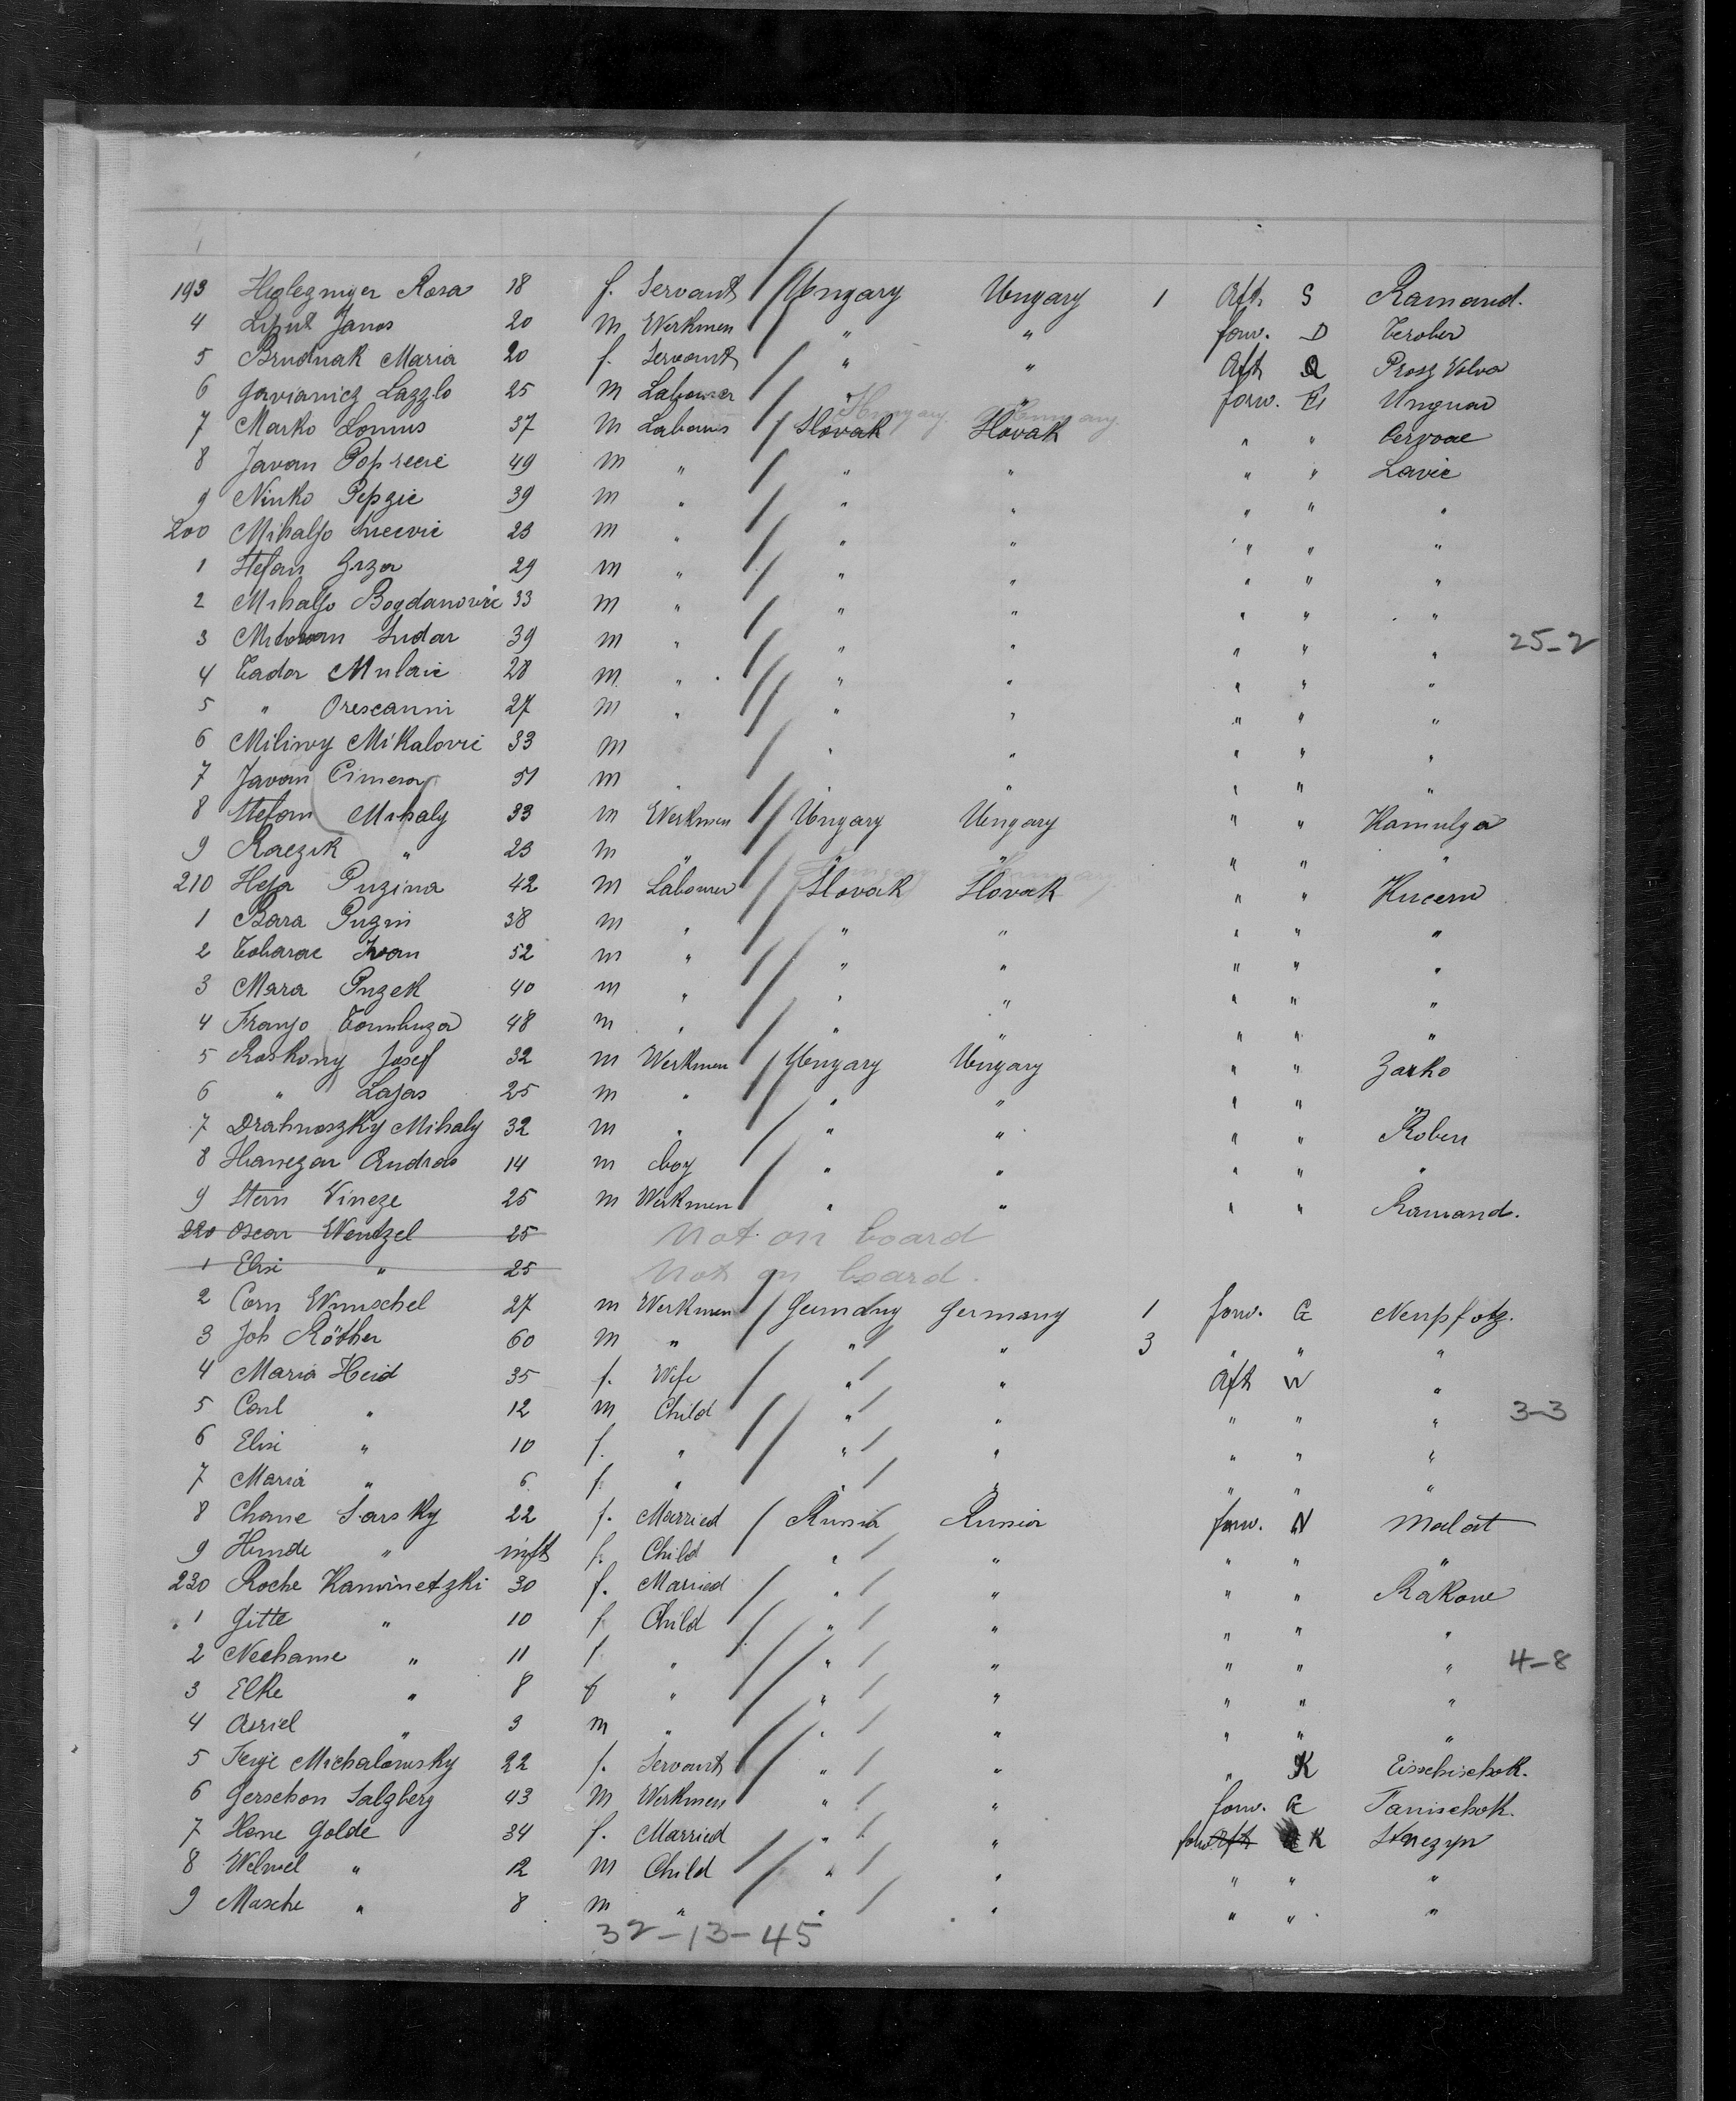 193 Rosa 18 f. Servant Ungary Ungary 1 Aft S Ramand.
4 Janos 20 m Werkmen " " forw. D Terober
5 Brudnak Maria 20 f. Servant " " Aft Q Prosz Volva
6 Javianicz Lazzlo 25 m Labourer " " forw. Ungvar
7 Marko Lomus 37 m Labourers Slovak Hungary Slovak Hungary " "
8 Javan 49 m " " " " " Lavic
9 Ninko Pepzic 39 m " " " " " "
200 Mihaljo 23 m " " " " " "
1 Stefan Grza 29 m " " " " " "
2 Mihaljo Bogdanovic 33 m " " " " " "
3 Milovan Sudar 39 m " " " " " " 25-2
4 Tador Mulaic 28 m " " " " " "
5 " Orescanni 27 m " " " " " "
6 Milivoy Mikalovic 33 m " " " " "
7 Javan Cimera 51 m " " " " "
8 Stefan Mihaly 33 m Werkmen Ungary Ungary " " Kamulga
9 Raczik " 23 m " " " " " "
210 Heja Puzina 42 m Labourer Slovak Slovak " " Kucern
1 Bara Puzin 38 m " " " " " "
2 Tobarac Ivan 52 m " " " " " "
3 Mara Puzek 40 m " " " " " "
4 Franjo 48 m " " " " " "
5 Roskony Josef 32 m Werkmen Ungary Ungary " " Zarko
6 " Lajas 25 m " " " " "
7 Drahnoszky Mihaly 32 m " " " " " Roben
8 Hanezar Andras 14 m boy " " " " "
9 Stern Vincze 25 m Werkmen " " " " Ramand.
220 Oscar Wentzel 25 not on board
1 Elisi " 25 not on board.
2 Corn Wunschel 27 m Werkmen Germany Germany 1 forw. G Neupfotz.
3 Joh Röther 60 m " " " 3 " " "
4 Maria Heid 35 f. Wife " " Aft W "
5 Carl " 12 m Child " " " " " 3-3
6 Elisi " 10 f. " " " " " "
7 Maria " 6 f. " " " " " "
8 Chane Sarsky 22 f. Married Russia Russia forw. N Malat
9 Hinde " inft f. Child " " " " "
230 Roche Kaminetzki 30 f. Married " " " " Rakove
1 Gitte " 10 f. Child " " " " "
2 Nechame " 11 f " " " " " " 4-8
3 Elke " 8 f " " " " " "
4 Asriel " 3 m " " " " " "
5 Feige Michalowsky 22 f. Servant " " " K Eisschischok.
6 Gerschon Salzberg 43 m Werkmen " " forw. G Tanischok.
7 Hene Golde 34 f. Married " " forw Aft K
8 Welwel " 12 m Child " " " " "
9 Masche " 8 m " " " " " "
32-13-45